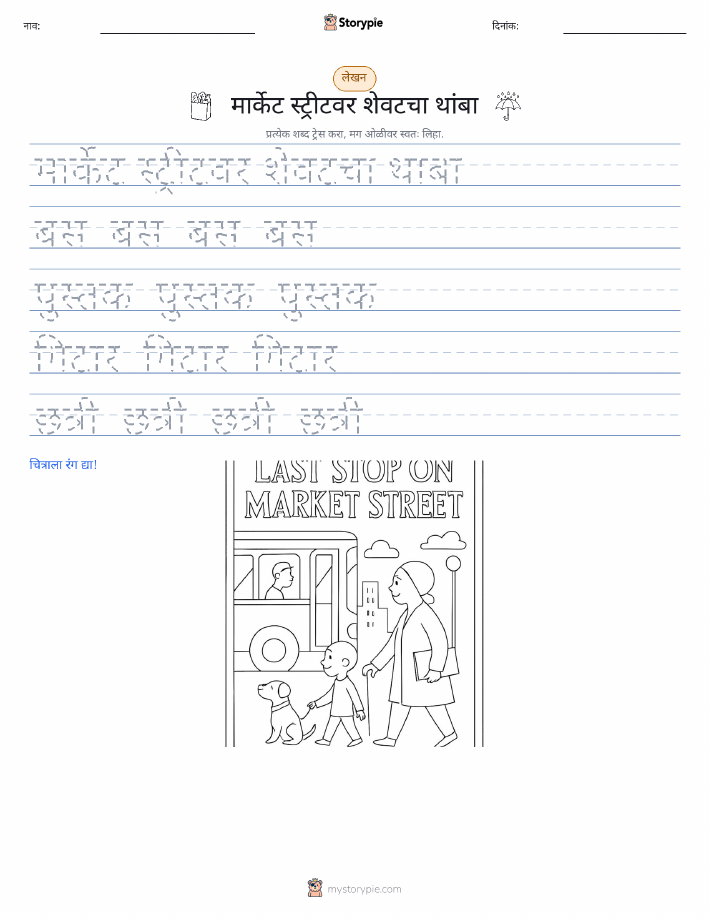 नाव:
Storypie
दिनांक:
लेखन
मार्केट स्ट्रीटवर शेवटचा थांबा
प्रत्येक शब्द ट्रेस करा, मग ओळीवर स्वतः लिहा.
मार्केट स्ट्रीटवर शेवटचा थांबा
बस बस बस बस
पुस्तक पुस्तक पुस्तक
गिटार गिटार गिटार
छत्री छत्री छत्री छत्री
चित्राला रंग द्या!
LAST STOP ON
MARKET STREET
mystorypie.com